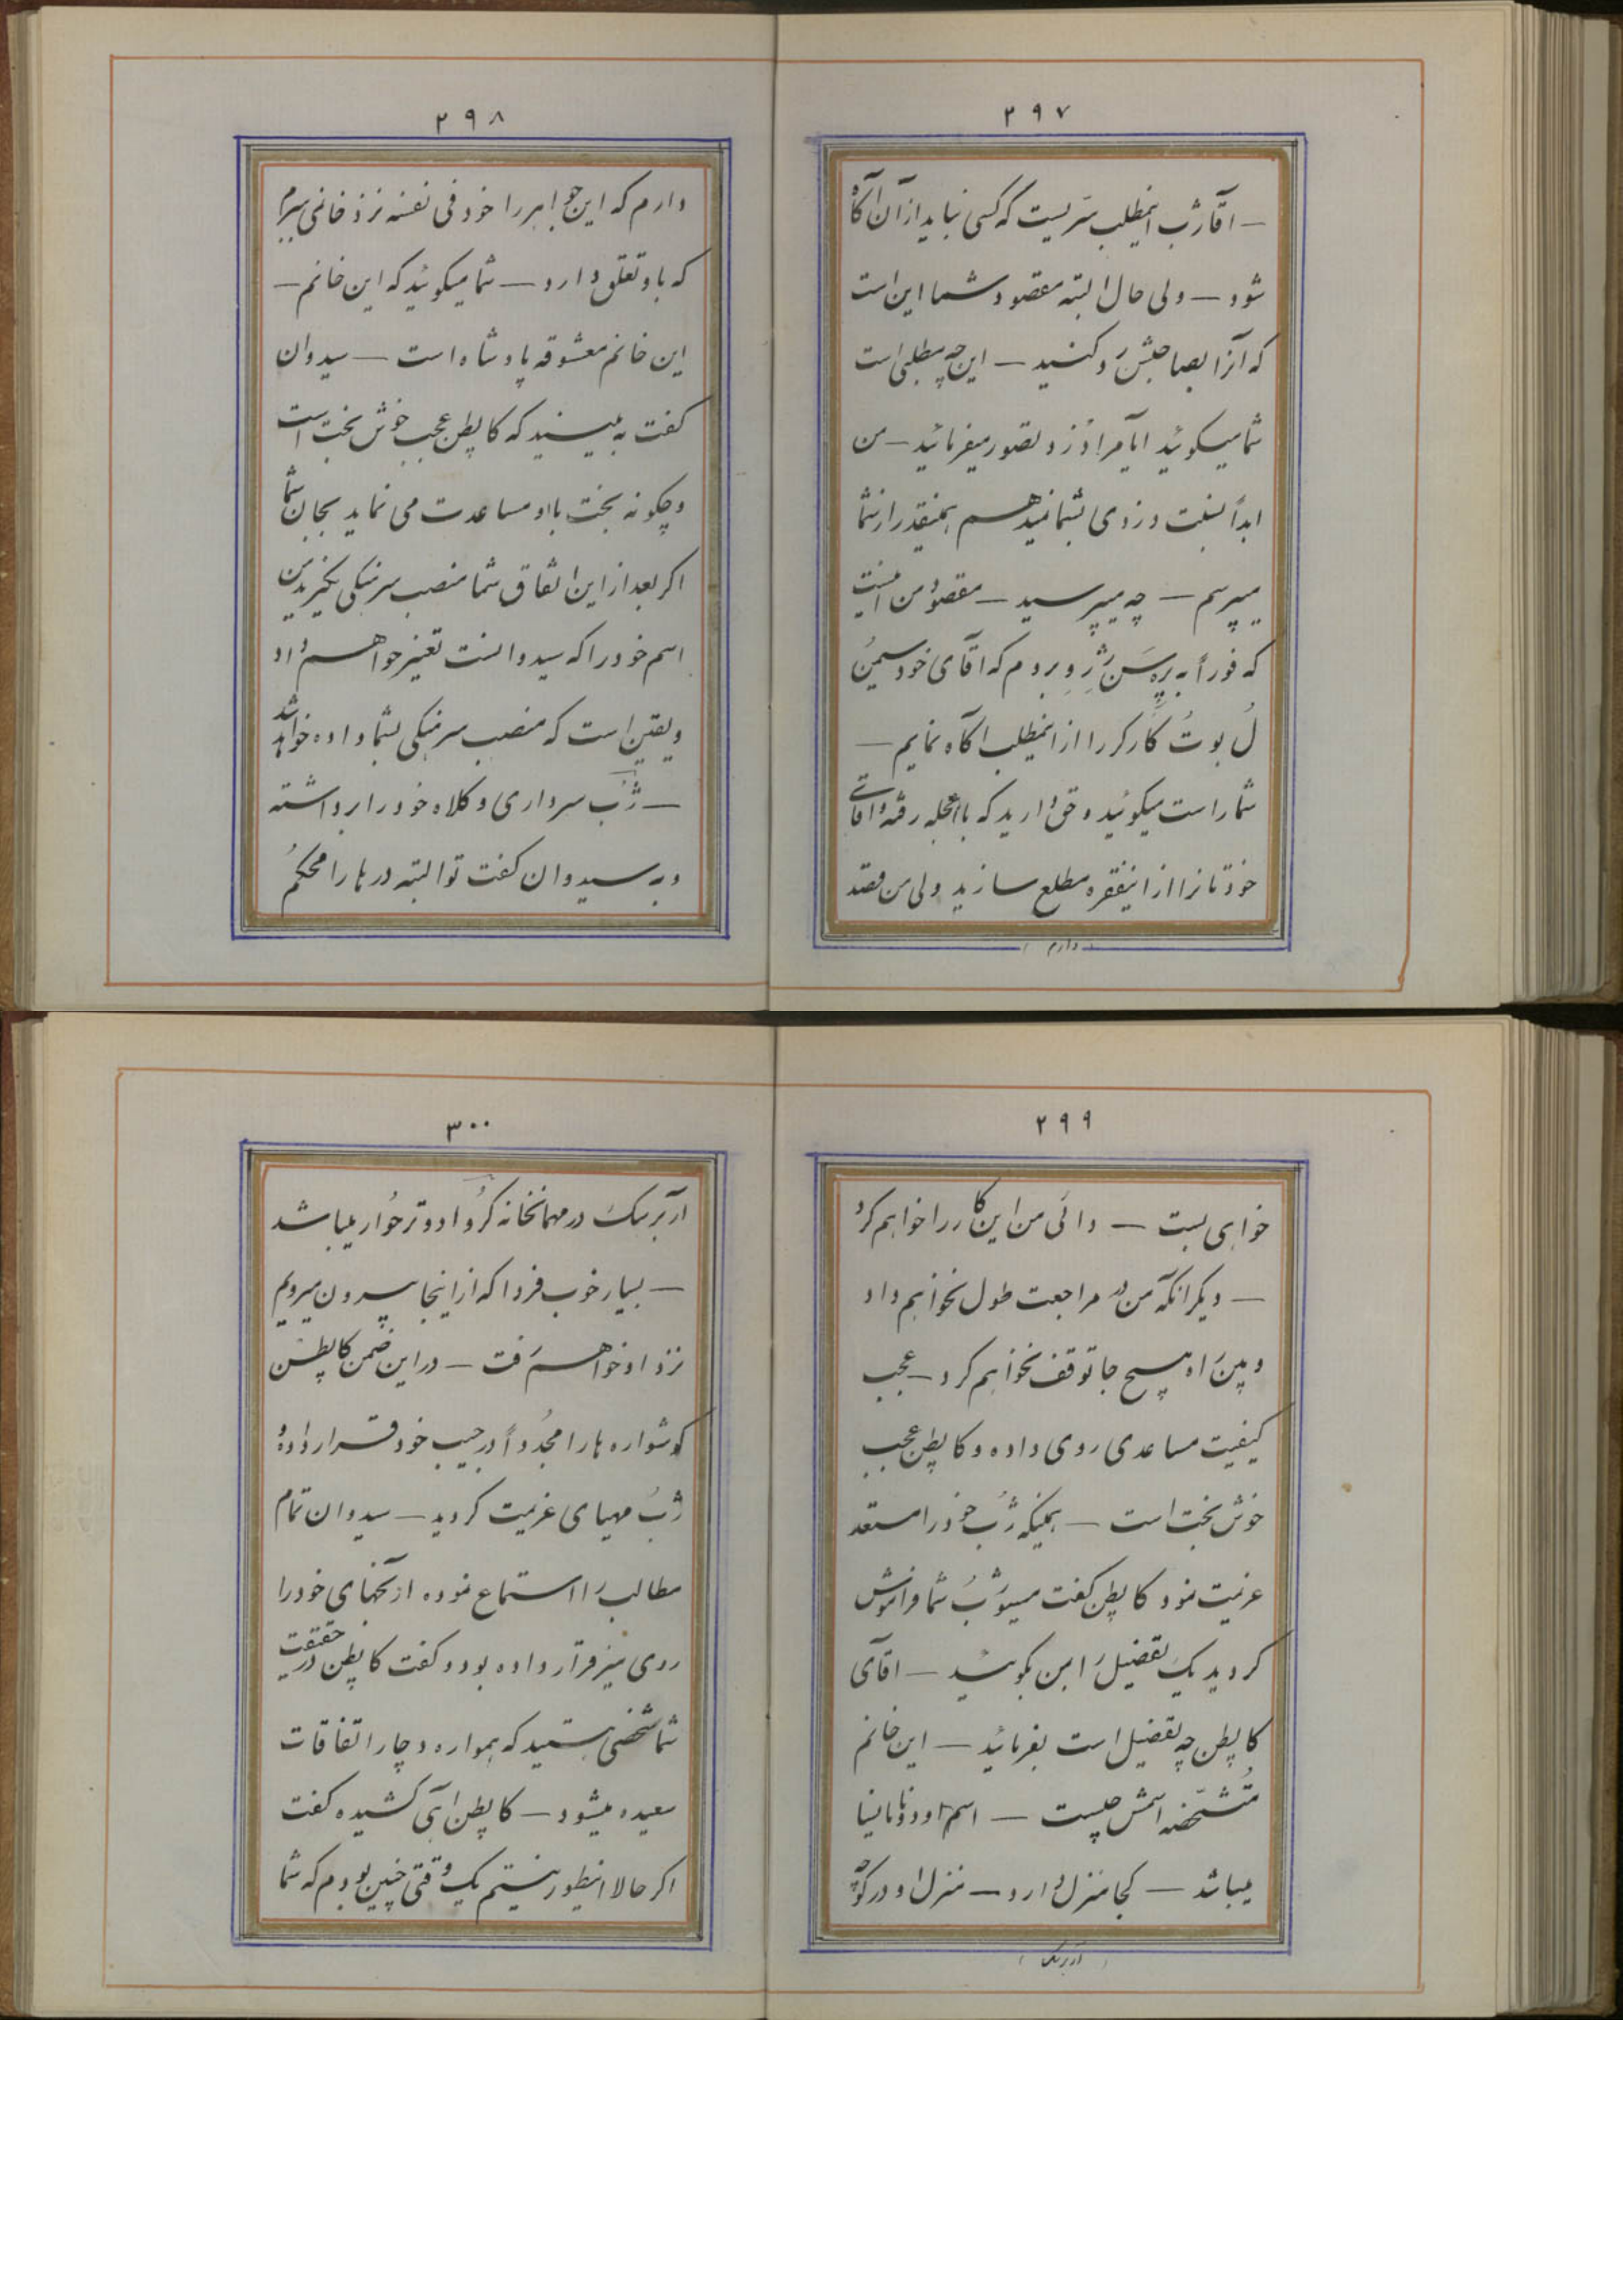 ۲۹۷
— اقا ژب اینمطلب سریست که کسی نباید از آن آگاه
شود — ولی حال البته مقصود شما این است
که آنرا بصاحبش رد کنید — این چه مطلبی است
شما میکوئید ایا مرا دزد تصور میفرمائید — من
ابداً نسبت دزدی بشما نمیدهم همینقدر از شما
میپرسم — چه میپرسید — مقصود من اینست
که فوراً به پره سن ژرو بروم که اقای خود سیمن
ل بوت کارکر را از اینمطلب اکاه نمایم —
شما راست میکوئید و حق دارید که باعجله رفته و اقای
خودتانرا از اینفقره مطلع سازید ولی من قصد
دارم
۲۹۸
دارم که این جواهر را خود فی نفسه نزد خانمی ببرم
که باو تعلق دارد — شما میکوئید که این خانم —
این خانم معشوقه پادشاه است — سیدوان
کفت به بینید که کاپطن عجب خوش بخت است
و چکونه بخت با او مساعدت می نماید بجان شما
اکر بعد از این اتفاق شما منصب سرهنکی نکیرید من
اسم خود را که سیدوانست تغییر خواهم داد
و یقین است که منصب سرهنکی بشما داده خواهد شد
— ژب سرداری و کلاه خود را برداشته
و به سیدوان کفت تو البته درها را محکم
۲۹۹
خواهی بست — دائی من این کار را خواهم کرد
— دیکر انکه من در مراجعت طول نخواهم داد
و بین راه هیچ جا توقف نخواهم کرد — عجب
کیفیت مساعدی روی داده و کاپطن عجب
خوش بخت است — همینکه ژب خود را مستعد
عزیمت نمود کاپطن کفت مسیو ژب شما فراموش
کردید یک تفضیل را بمن بکوئید — اقای
کاپطن چه تفضیل است بفرمائید — این خانم
متشخصه اسمش چیست — اسم او دونانانیا
میباشد — کجا منزل دارد — منزل او در کوچه
آربریک
۳۰۰
آربریک در مهمانخانه کرد ادوترخوار میباشد
— بسیار خوب فردا که از اینجا بیرون میرویم
نزد او خواهم رفت — در این ضمن کاپطن
کوشواره ها را مجدداً در جیب خود قرار داده و
ژب مهیای عزیمت کردید — سیدوان تمام
مطالب را استماع نموده ارنجهای خود را
روی میز قرار داده بود و کفت کاپطن در حقیقت
شما شخصی هستید که همواره دچار اتفاقات
سعیده میشود — کاپطن اهی کشیده کفت
اکر حالا اینطور نیستم یک وقتی چنین بودم که شما